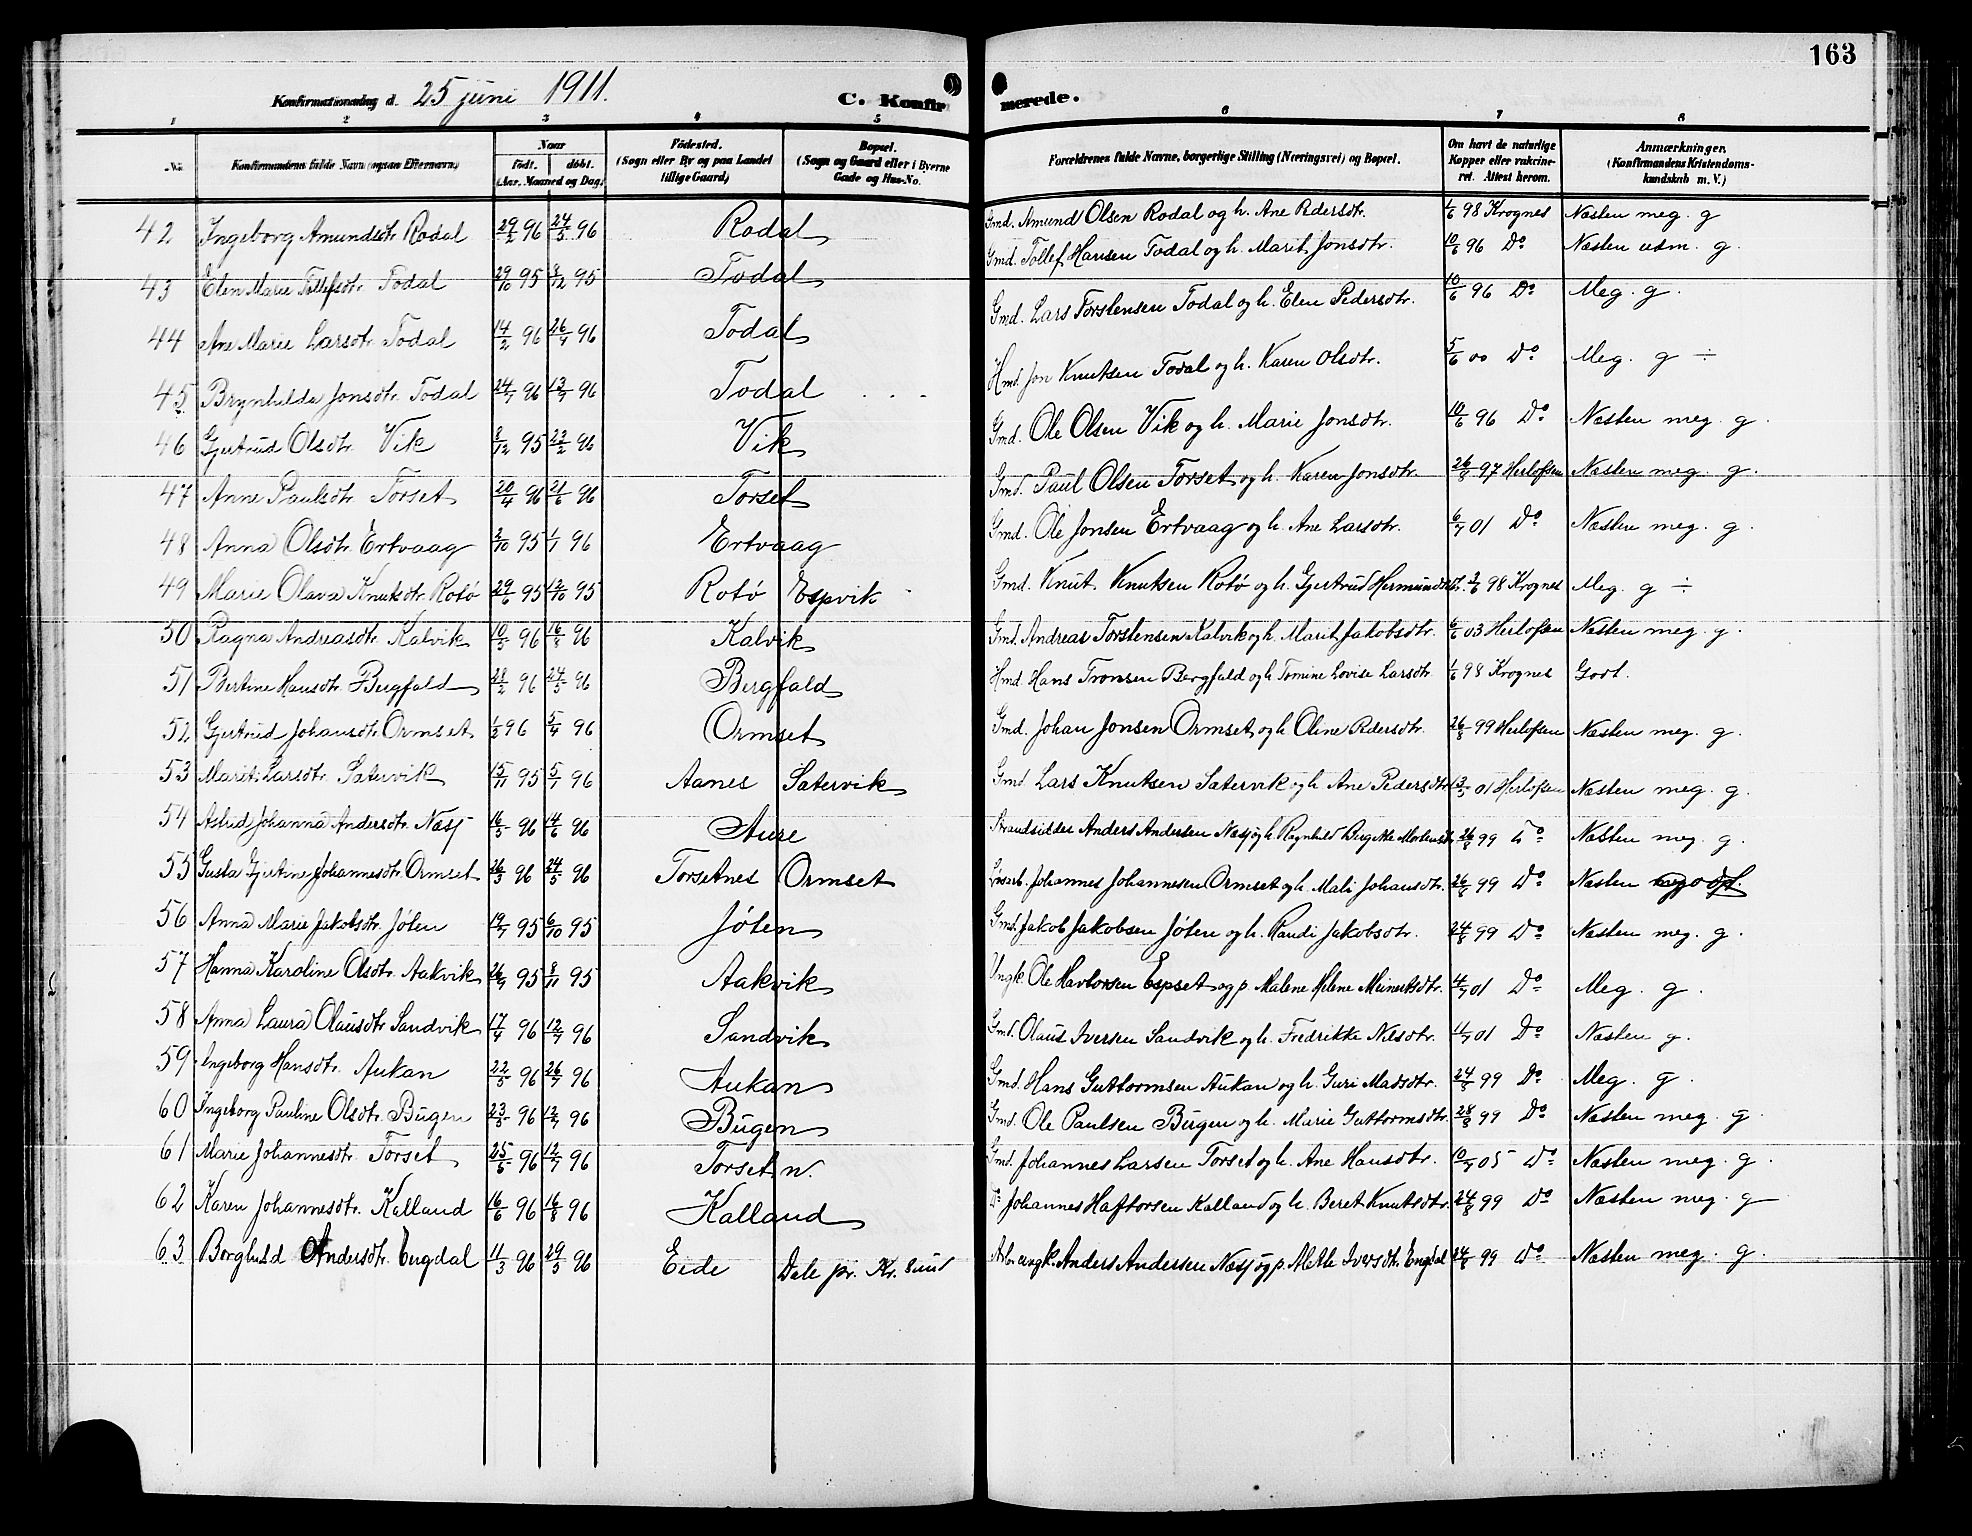 163
Konfirmationsdag d. 25 juni 1911. C. Konfirmerede.
1 2 3 4 5 6 7 8
No. Konfirmandens fulde Navn (ogsaa Efternavn) Naar født. døbt. (Aar, Maaned og Dag) Fødested. (Sogn eller By og paa Landet tillige Gaard) Bopæl. (Sogn og Gaard eller i Byerne Gade og Hus-No. Forældrenes fulde Navne, borgerlige Stilling (Næringsvei) og Bopæl. Om havt de naturlige Kopper eller vakcineret. Attest herom. Anmærkninger. (Konfirmandens Kristendomskundskab m. V.)
42 Ingeborg Amundsdtr. Rodal 29/2 96 24/5 96 Rodal Gmd. Amund Olsen Rodal og h. Ane Pdersdtr. 1/6 98 Krognes Næsten meg. g
43 Elen Marie Tollefsdtr. Todal 29/10 95 8/12 95 Todal Gmd. Tollef Hansen Todal og h. Marit Jonsdtr. 10/6 96 Do Næsten udm. g.
44 Ane Marie Larsdtr. Todal 14/2 96 26/4 96 Todal Gmd. Lars Torstensen Todal og h. Elen Pedersdtr. 10/6 96 Do Meg. g.
45 Brynhilda Jonsdtr. Todal 24/4 96 13/7 96 Todal Hmd. Jon Knutsen Todal og h. Karen Olsdtr. 5/6 00 Do Meg. g ÷
46 Gjertrud Olsdtr. Vik 8/12 95 23/2 96 Vik Gmd. Ole Olsen Vik og h. Marie Jonsdtr. 10/6 96 Do Næsten meg. g.
47 Anne Paulsdtr. Torset 20/4 96 21/6 96 Torset Gmd. Paul Olsen Torset og h. Karen Jonsdtr. 26/8 97 Herlofsen Næsten meg. g.
48 Anna Olsdtr. Ertvaag 3/10 95 1/1 96 Ertvaag Gmd. Ole Jonsen Ertvaag og h. Ane Larsdtr. 6/7 01 Do Næsten meg. g.
49 Marie Olava Knutsdtr. Rotø 29/6 95 12/10 95 Rotø Espvik Gmd. Knut Knutsen Rotø og h. Gjertrud Hermundsdtr. 2/7 98 Krognes Meg. g ÷
50 Ragna Andreasdtr. Kalvik 10/5 96 16/8 96 Kalvik Gmd. Andreas Torstensen Kalvik og h. Marit Jakobsdtr. 6/6 03 Herlofsen Næsten meg. g.
51 Bertine Hansdtr. Bergfald 28/2 96 24/5 96 Bergfald Hmd. Hans Tronsen Bergfald og h. Tomine Lovise Larsdtr. 1/6 98 Krognes Godt.
52 Gjertrud Johansdtr. Ormset 1/2 96 5/4 96 Ormset Gmd. Johan Jonsen Ormset og h. Oline Pdersdtr. 26/8 99 Herlofsen Næsten meg. g.
53 Marit Larsdtr. Satervik 15/11 95 5/1 96 Aanes Satervik Gmd. Lars Knutsen Satervik og h. Ane Pedersdtr. 13/5 01 Herlofsen Næsten meg. g.
54 Astrid Johanna Andersdtr. Næsj 16/5 96 14/6 96 Aure Strandsidder Anders Andersen Næsj og h. Ragnhild Bergitte Mortensdtr. 26/8 99 Do Næsten meg. g.
55 Gusta Gjertine Johannesdtr. Ormset 26/3 96 24/5 96 Torsetnes Ormset Johannes Johannesen Ormset og h. Mali Johansdtr. 26/8 99 Do Næsten
56 Anna Marie Jakobsdtr. Jøten 19/7 95 6/10 95 Jøten Gmd. Jakob Jakobsen Jøten og h. Randi Jakobsdtr. 24/8 99 Do Næsten meg. g.
57 Hanna Karoline Olsdtr. Aakvik 26/9 95 8/11 95 Aakvik Ungk. Ole Havtorsen Espset og p. Malene Helene Meinertsdtr. 4/7 01 Do Meg. g.
58 Anna Laura Olausdtr. Sandvik 17/4 96 12/7 96 Sandvik Gmd. Olaus Iversen Sandvik og h. Fredrikke Nilsdtr. 4/7 01 Do Næsten g.
59 Ingeborg Hansdtr. Aukan 22/5 96 26/7 96 Aukan Gmd. Hans Guttormsen Aukan og h. Guri Madsdtr. 24/8 99 Do Meg. g.
60 Ingeborg Pauline Olsdtr. Bugen 23/5 96 12/7 96 Bugen Gmd. Ole Paulsen Bugen og h. Marie Guttormsdtr. 28/8 99 Do Næsten meg. g.
61 Marie Johannesdtr. Torset 25/5 96 12/7 96 Torset n. Gmd. Johannes Larsen Torset og h. Ane Hansdtr. 10/7 05 Do Næsten meg. g.
62 Karen Johannesdtr. Kalland 16/6 96 16/8 96 Kalland Do Johannes Haftorsen Kalland og h. Beret Knutsdtr. 24/8 99 Do Næsten meg. g
63 Borghild Andersdtr. Engdal 11/3 96 29/5 96 Eide Dale pr. Kr. sund Arb. ungk. Anders Andersen Næsj og p. Mette Iversdtr. Engdal 24/8 99 Do Næsten meg. g.